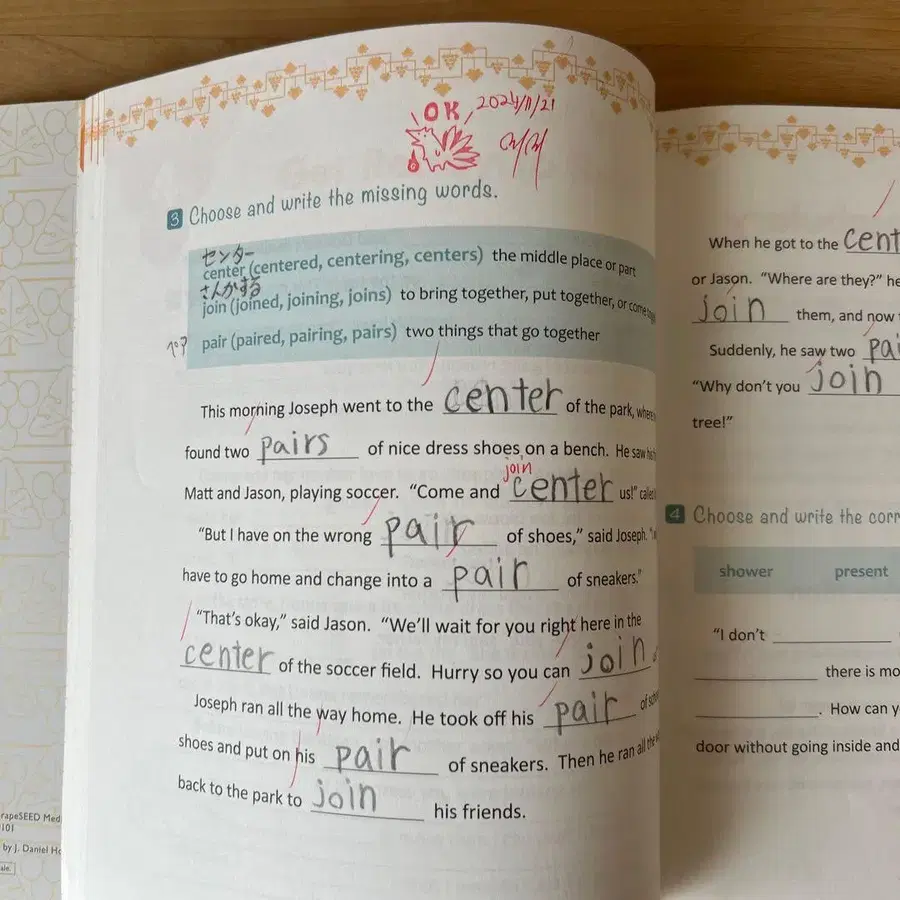 OK 2024/11/21
3 Choose and write the missing words.
センター
center (centered, centering, centers) the middle place or part
さんかする
join (joined, joining, joins) to bring together, put together, or come
ペア pair (paired, pairing, pairs) two things that go together
This morning Joseph went to the center of the park, where
found two pairs of nice dress shoes on a bench. He saw
join
Matt and Jason, playing soccer. "Come and center us!" called
"But I have on the wrong pair of shoes," said Joseph.
have to go home and change into a pair of sneakers."
"That's okay," said Jason. "We'll wait for you right here in the
center of the soccer field. Hurry so you can join
Joseph ran all the way home. He took off his pair of
shoes and put on his pair of sneakers. Then he ran all the
back to the park to join his friends.
When he got to the cent
or Jason. "Where are they?" he
join them, and now
Suddenly, he saw two pai
"Why don't you join
tree!"
4 Choose and write the corr
shower present
"I don't
there is mo
. How can y
door without going inside and
rapeSEED Med
101
by J. Daniel